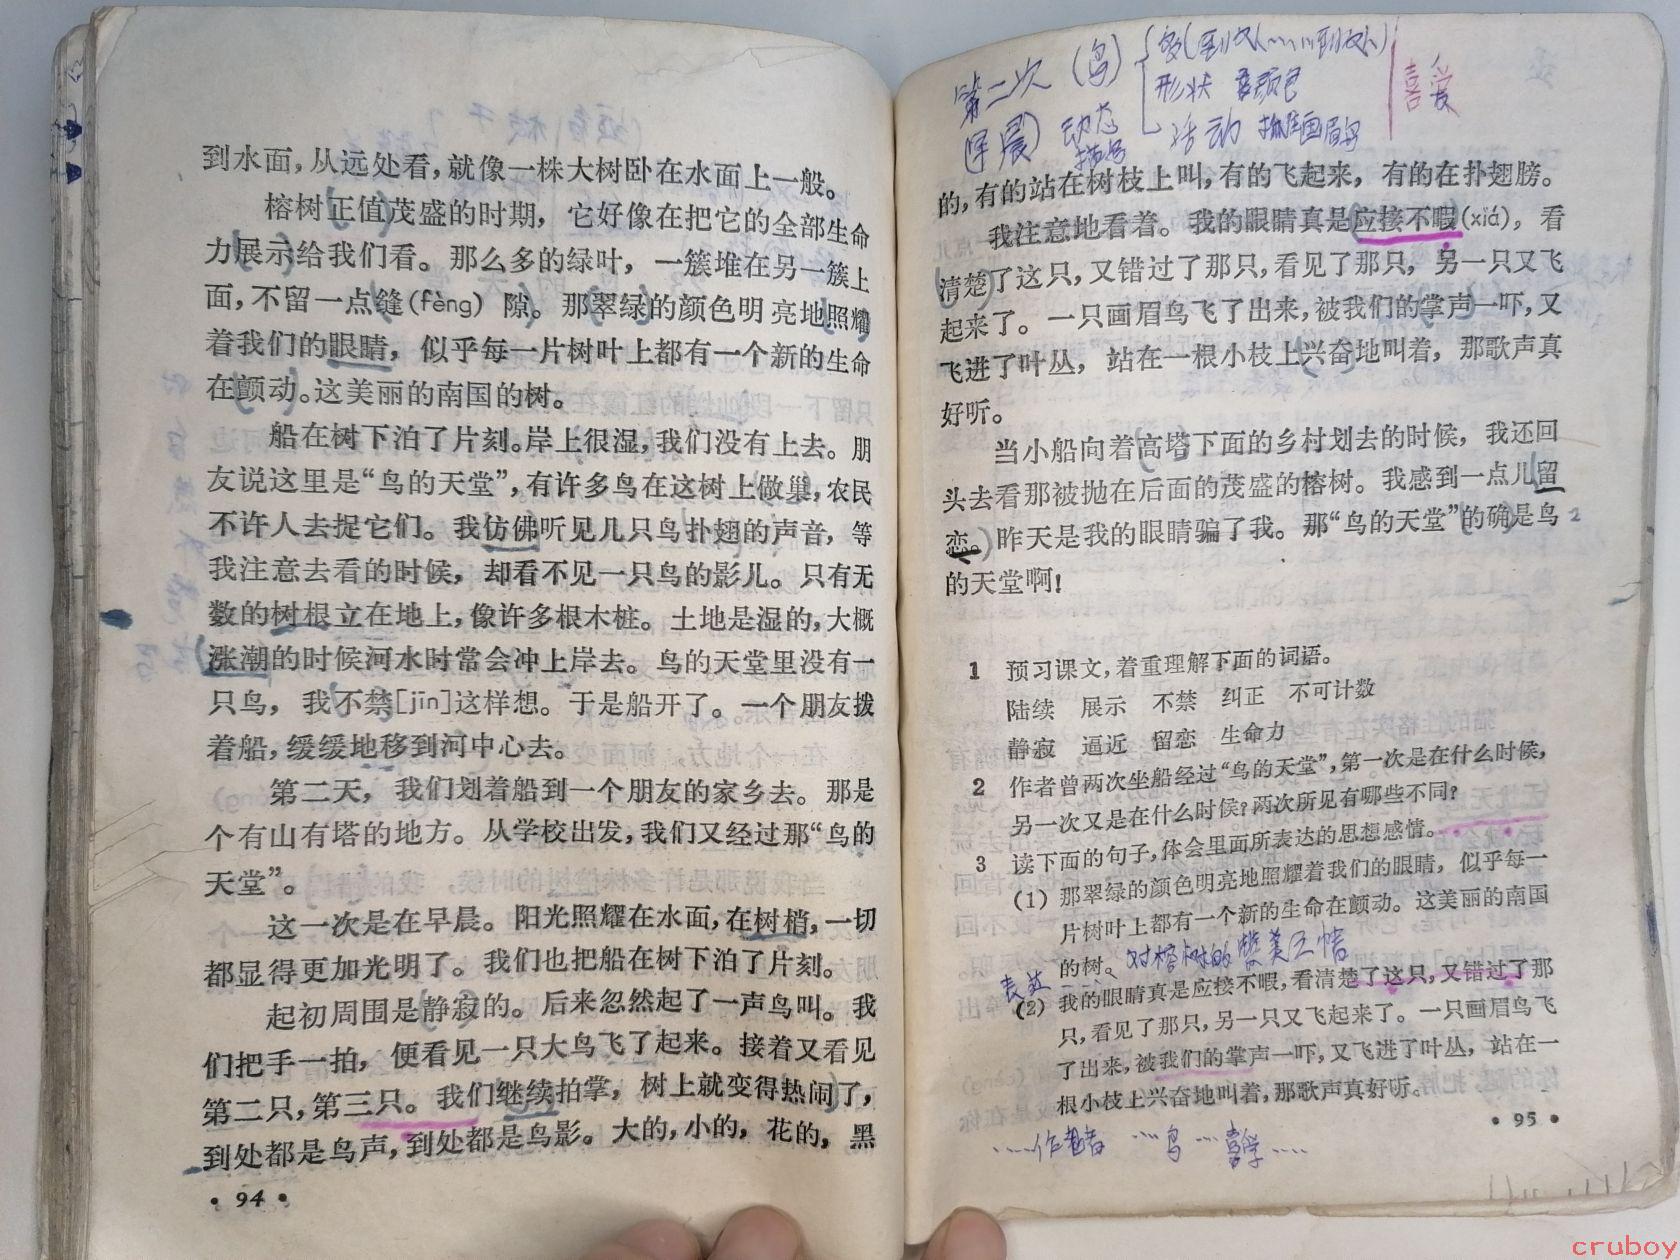 到水面，从远处看，就像一株大树卧在水面上一般。
榕树正值茂盛的时期，它好像在把它的全部生命
力展示给我们看。那么多的绿叶，一簇堆在另一簇上
面，不留一点缝(fèng)隙。那翠绿的颜色明亮地照耀
着我们的眼睛，似乎每一片树叶上都有一个新的生命
在颤动。这美丽的南国的树。
船在树下泊了片刻。岸上很湿，我们没有上去。朋
友说这里是“鸟的天堂”，有许多鸟在这树上做巢，农民
不许人去捉它们。我仿佛听见几只鸟扑翅的声音，等
我注意去看的时候，却看不见一只鸟的影儿。只有无
数的树根立在地上，像许多根木桩。土地是湿的，大概
涨潮的时候河水时常会冲上岸去。鸟的天堂里没有一
只鸟，我不禁[jīn]这样想。于是船开了。一个朋友拨
着船，缓缓地移到河中心去。
第二天，我们划着船到一个朋友的家乡去。那是
个有山有塔的地方。从学校出发，我们又经过那“鸟的
天堂”。
这一次是在早晨。阳光照耀在水面，在树梢，一切
都显得更加光明了。我们也把船在树下泊了片刻。
起初周围是静寂的。后来忽然起了一声鸟叫。我
们把手一拍，便看见一只大鸟飞了起来。接着又看见
第二只，第三只。我们继续拍掌，树上就变得热闹了，
到处都是鸟声，到处都是鸟影。大的，小的，花的，黑
• 94 •
第二次（鸟）
多（到处……到处）
形状 颜色
活动 抓住画眉鸟
喜爱
（早晨）动态
描写
的，有的站在树枝上叫，有的飞起来，有的在扑翅膀。
我注意地看着。我的眼睛真是应接不暇(xiá)，看
清楚了这只，又错过了那只，看见了那只，另一只又飞
起来了。一只画眉鸟飞了出来，被我们的掌声一吓，又
飞进了叶丛，站在一根小枝上兴奋地叫着，那歌声真
好听。
当小船向着高塔下面的乡村划去的时候，我还回
头去看那被抛在后面的茂盛的榕树。我感到一点儿留
恋。昨天是我的眼睛骗了我。那“鸟的天堂”的确是鸟
的天堂啊！
1 预习课文，着重理解下面的词语。
陆续 展示 不禁 纠正 不可计数
静寂 逼近 留恋 生命力
2 作者曾两次坐船经过“鸟的天堂”，第一次是在什么时候，
另一次又是在什么时候？两次所见有哪些不同？
3 读下面的句子，体会里面所表达的思想感情。
(1) 那翠绿的颜色明亮地照耀着我们的眼睛，似乎每一
片树叶上都有一个新的生命在颤动。这美丽的南国
的树。对榕树的赞美之情
表达
(2) 我的眼睛真是应接不暇，看清楚了这只，又错过了那
只，看见了那只，另一只又飞起来了。一只画眉鸟飞
了出来，被我们的掌声一吓，又飞进了叶丛，站在一
根小枝上兴奋地叫着，那歌声真好听。
• 95 •
……作者 …鸟…
cruboy